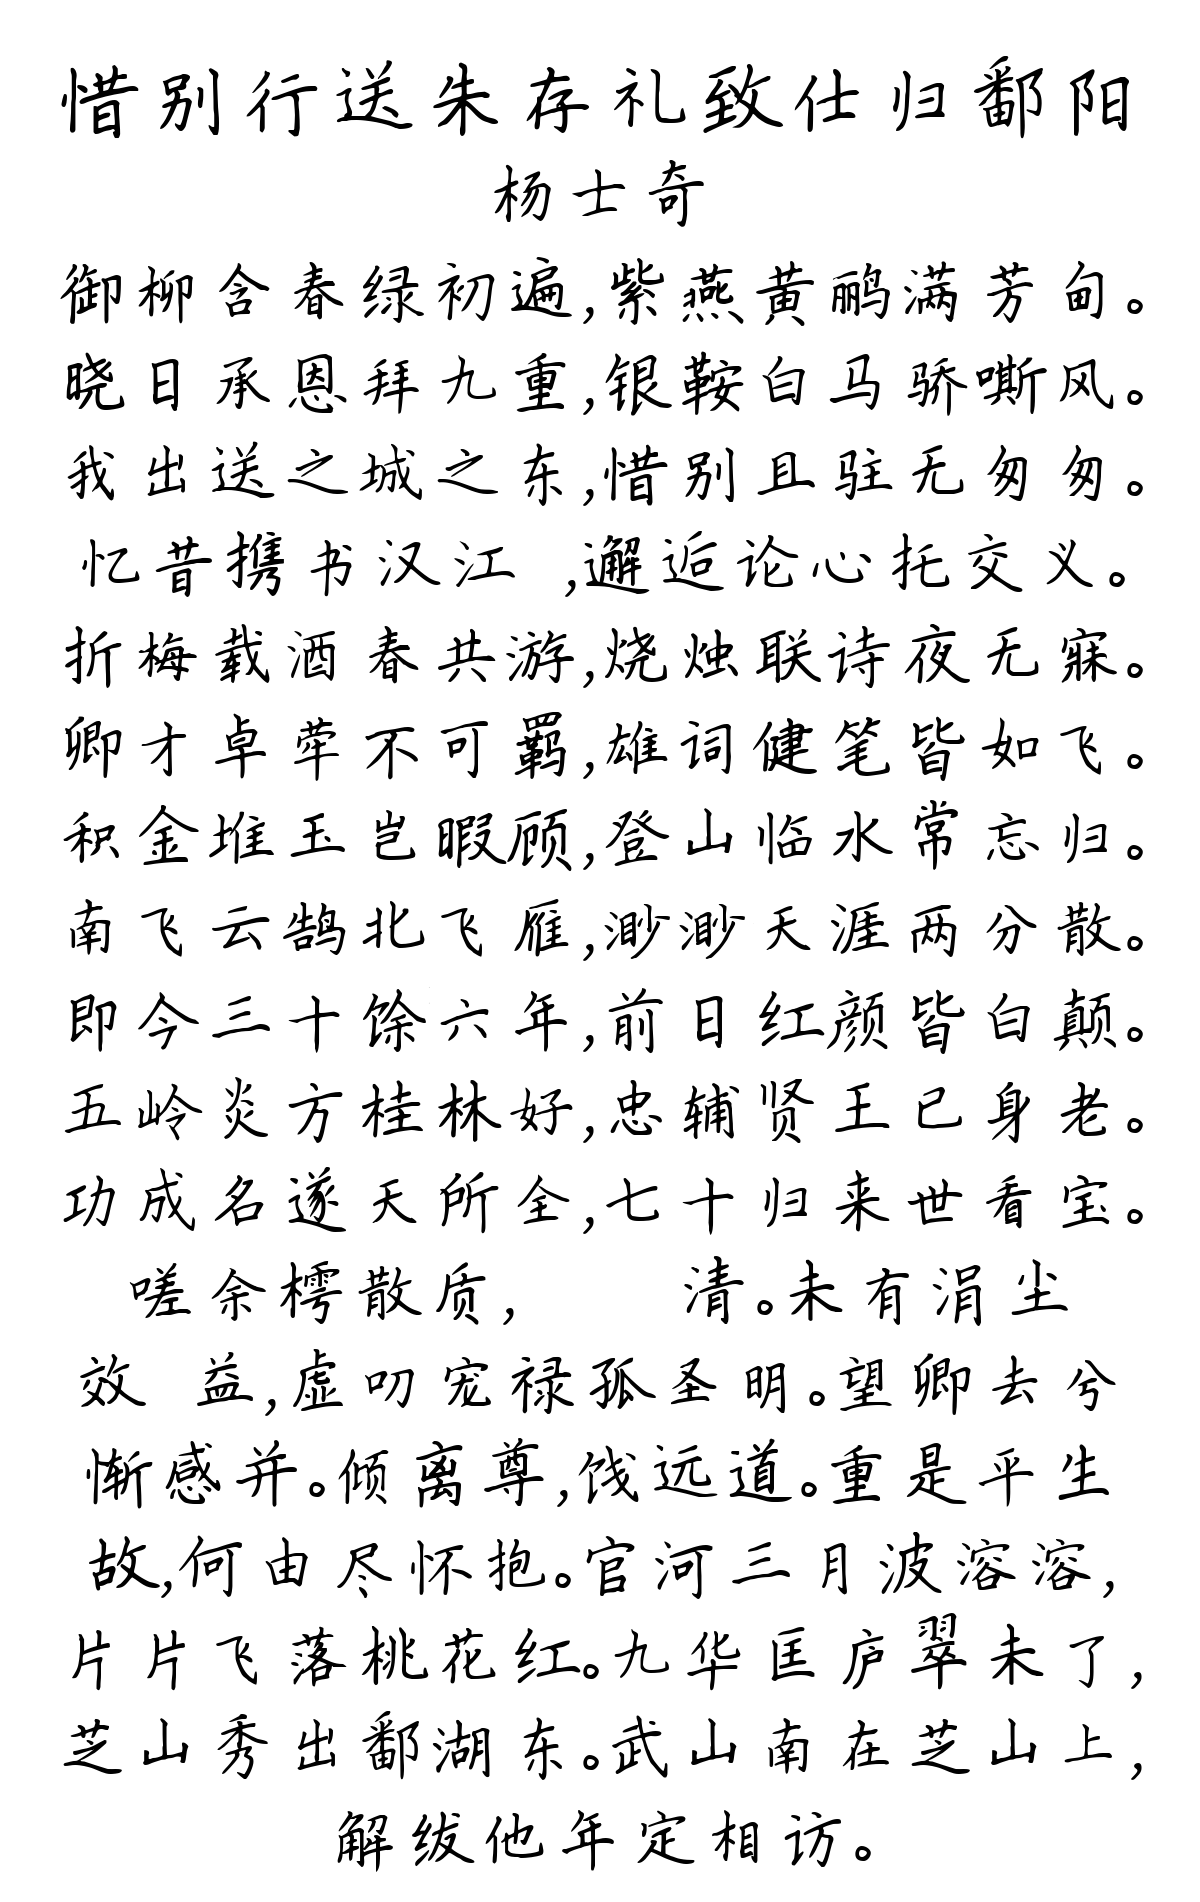 惜别行送朱存礼致仕归鄱阳
杨士奇
御柳含春绿初遍,紫燕黄鹂满芳甸。
晓日承恩拜九重,银鞍白马骄嘶风。
我出送之城之东,惜别且驻无匆匆。
忆昔携书汉江 ,邂逅论心托交义。
折梅载酒春共游,烧烛联诗夜无寐。
卿才卓荦不可羁,雄词健笔皆如飞。
积金堆玉岂暇顾,登山临水常忘归。
南飞云鹄北飞雁,渺渺天涯两分散。
即今三十馀六年,前日红颜皆白颠。
五岭炎方桂林好,忠辅贤王已身老。
功成名遂天所全,七十归来世看宝。
嗟余樗散质, 清。未有涓尘
效 益,虚叨宠禄孤圣明。望卿去兮
惭感并。倾离尊,饯远道。重是平生
故,何由尽怀抱。官河三月波溶溶,
片片飞落桃花红。九华匡庐翠未了,
芝山秀出鄱湖东。武山南在芝山上,
解绂他年定相访。